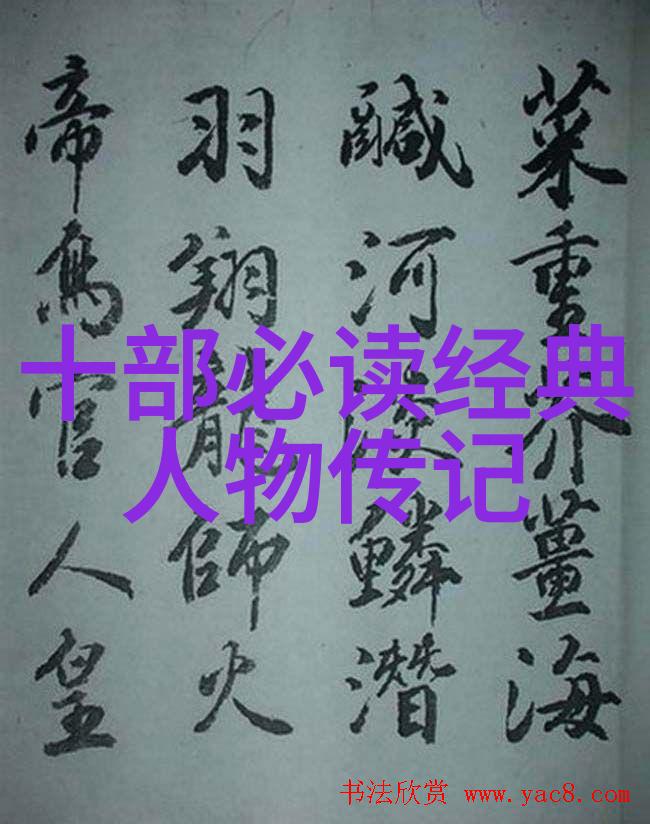 菜重芥薑海
鹹河淡鱗潛
羽翔龍師火
帝鳥官人皇
十部必读经典
人物传记
书法欣赏 www.yac8.com